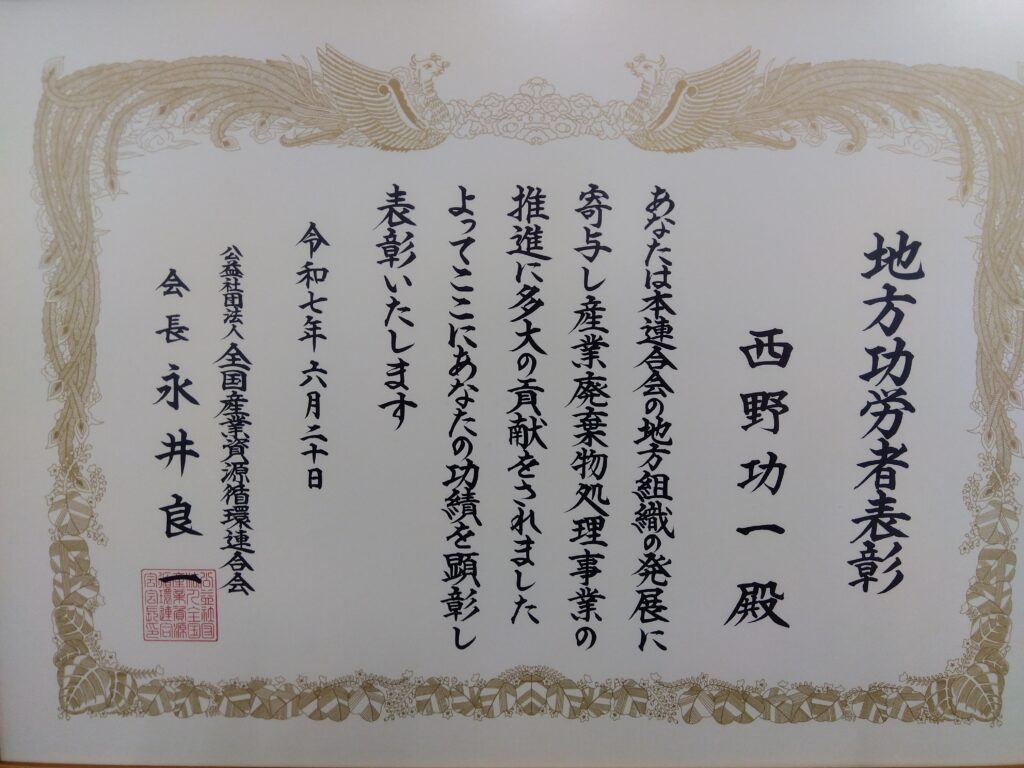 地方功労者表彰
西野功一殿
あなたは本連合会の地方組織の発展に
寄与し産業廃棄物処理事業の
推進に多大の貢献をされました
よってここにあなたの功績を顕彰し
表彰いたします
令和七年六月二十日
公益社団法人全国産業資源循環連合会
会長永井良一